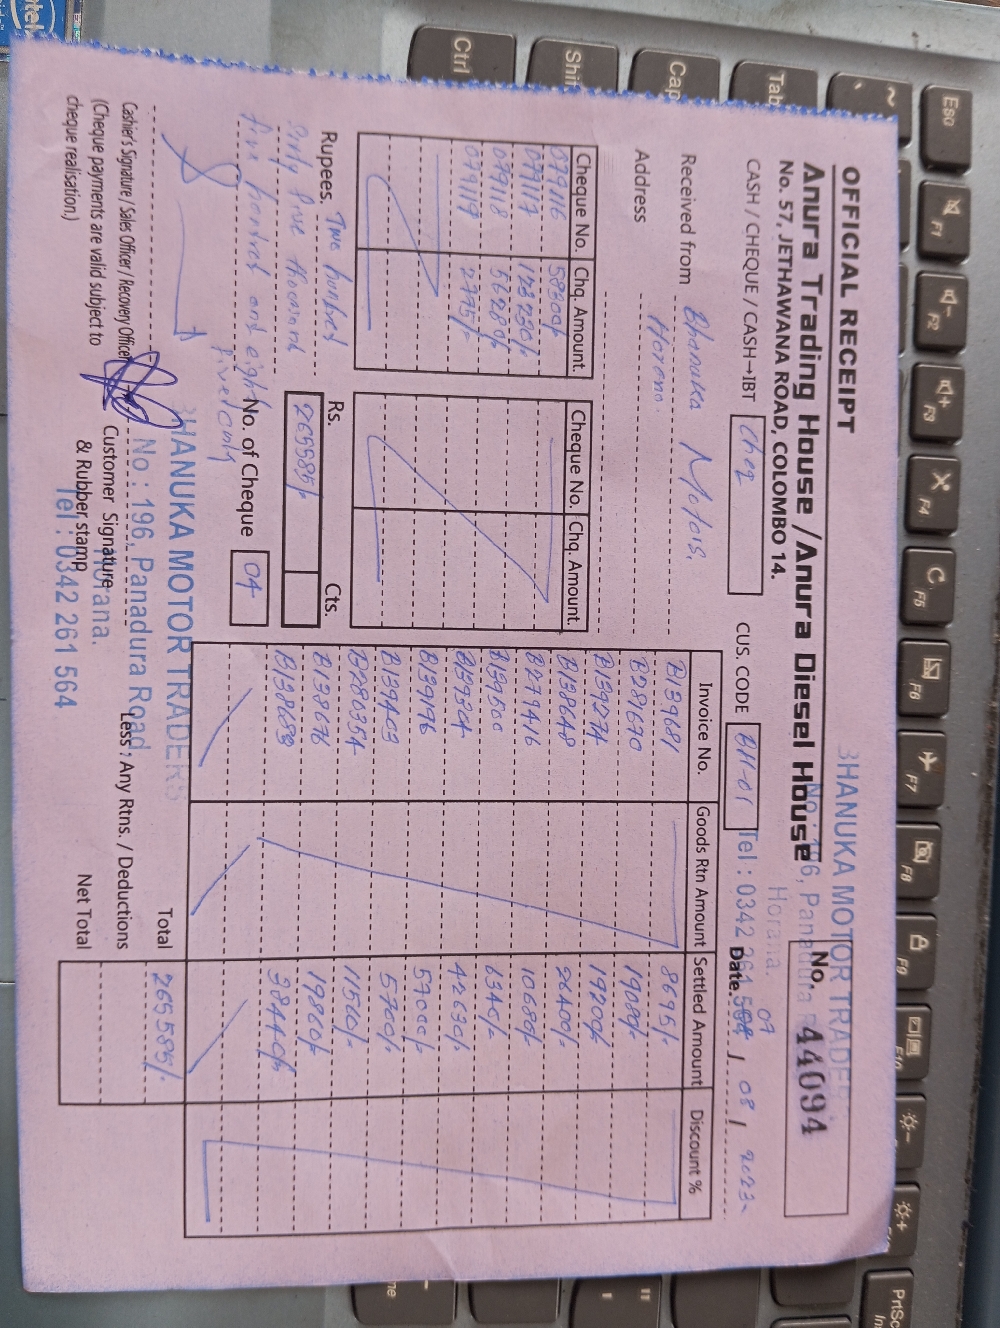 OFFICIAL RECEIPT
Anura Trading House / Anura Diesel House
No. 57, JETHAWANA ROAD, COLOMBO 14.
No. 44094
BHANUKA MOTOR TRADERS
No : 196, Panadura R
Horana.
Tel : 0342 261 564
CASH / CHEQUE / CASH→IBT Cheq
CUS. CODE BH-01
Date. 07 / 08 / 2023
Received from Bhanuka Motors.
Address Horana.
Cheque No. Chq. Amount. Cheque No. Chq. Amount.
079116 58300/-
079117 128230/-
079118 56280/-
079119 2775/-
Invoice No. Goods Rtn Amount Settled Amount Discount %
B139681 8695/-
B289670 19080/-
B139274 19200/-
B138648 26400/-
B279416 10680/-
B139500 6340/-
B139324 42630/-
B139196 57000/-
B139403 5700/-
B280354 11560/-
B138676 19860/-
B138633 38440/-
Rupees. Two hundred
Sixty five thousand
five hundred and eighty
five only
Rs. Cts.
265585/-
No. of Cheque 04
Total 265585/-
Less : Any Rtns. / Deductions
Net Total
Cashier's Signature / Sales Officer / Recovery Officer
(Cheque payments are valid subject to
cheque realisation.)
Customer Signature
& Rubber stamp
BHANUKA MOTOR TRADERS
No : 196, Panadura Road,
Horana.
Tel : 0342 261 564
Esc F1 F2 F3 F4 F5 F6 F7 F8 F9 F10
PrtSc
Tab
Cap
Shif
Ctrl
intel